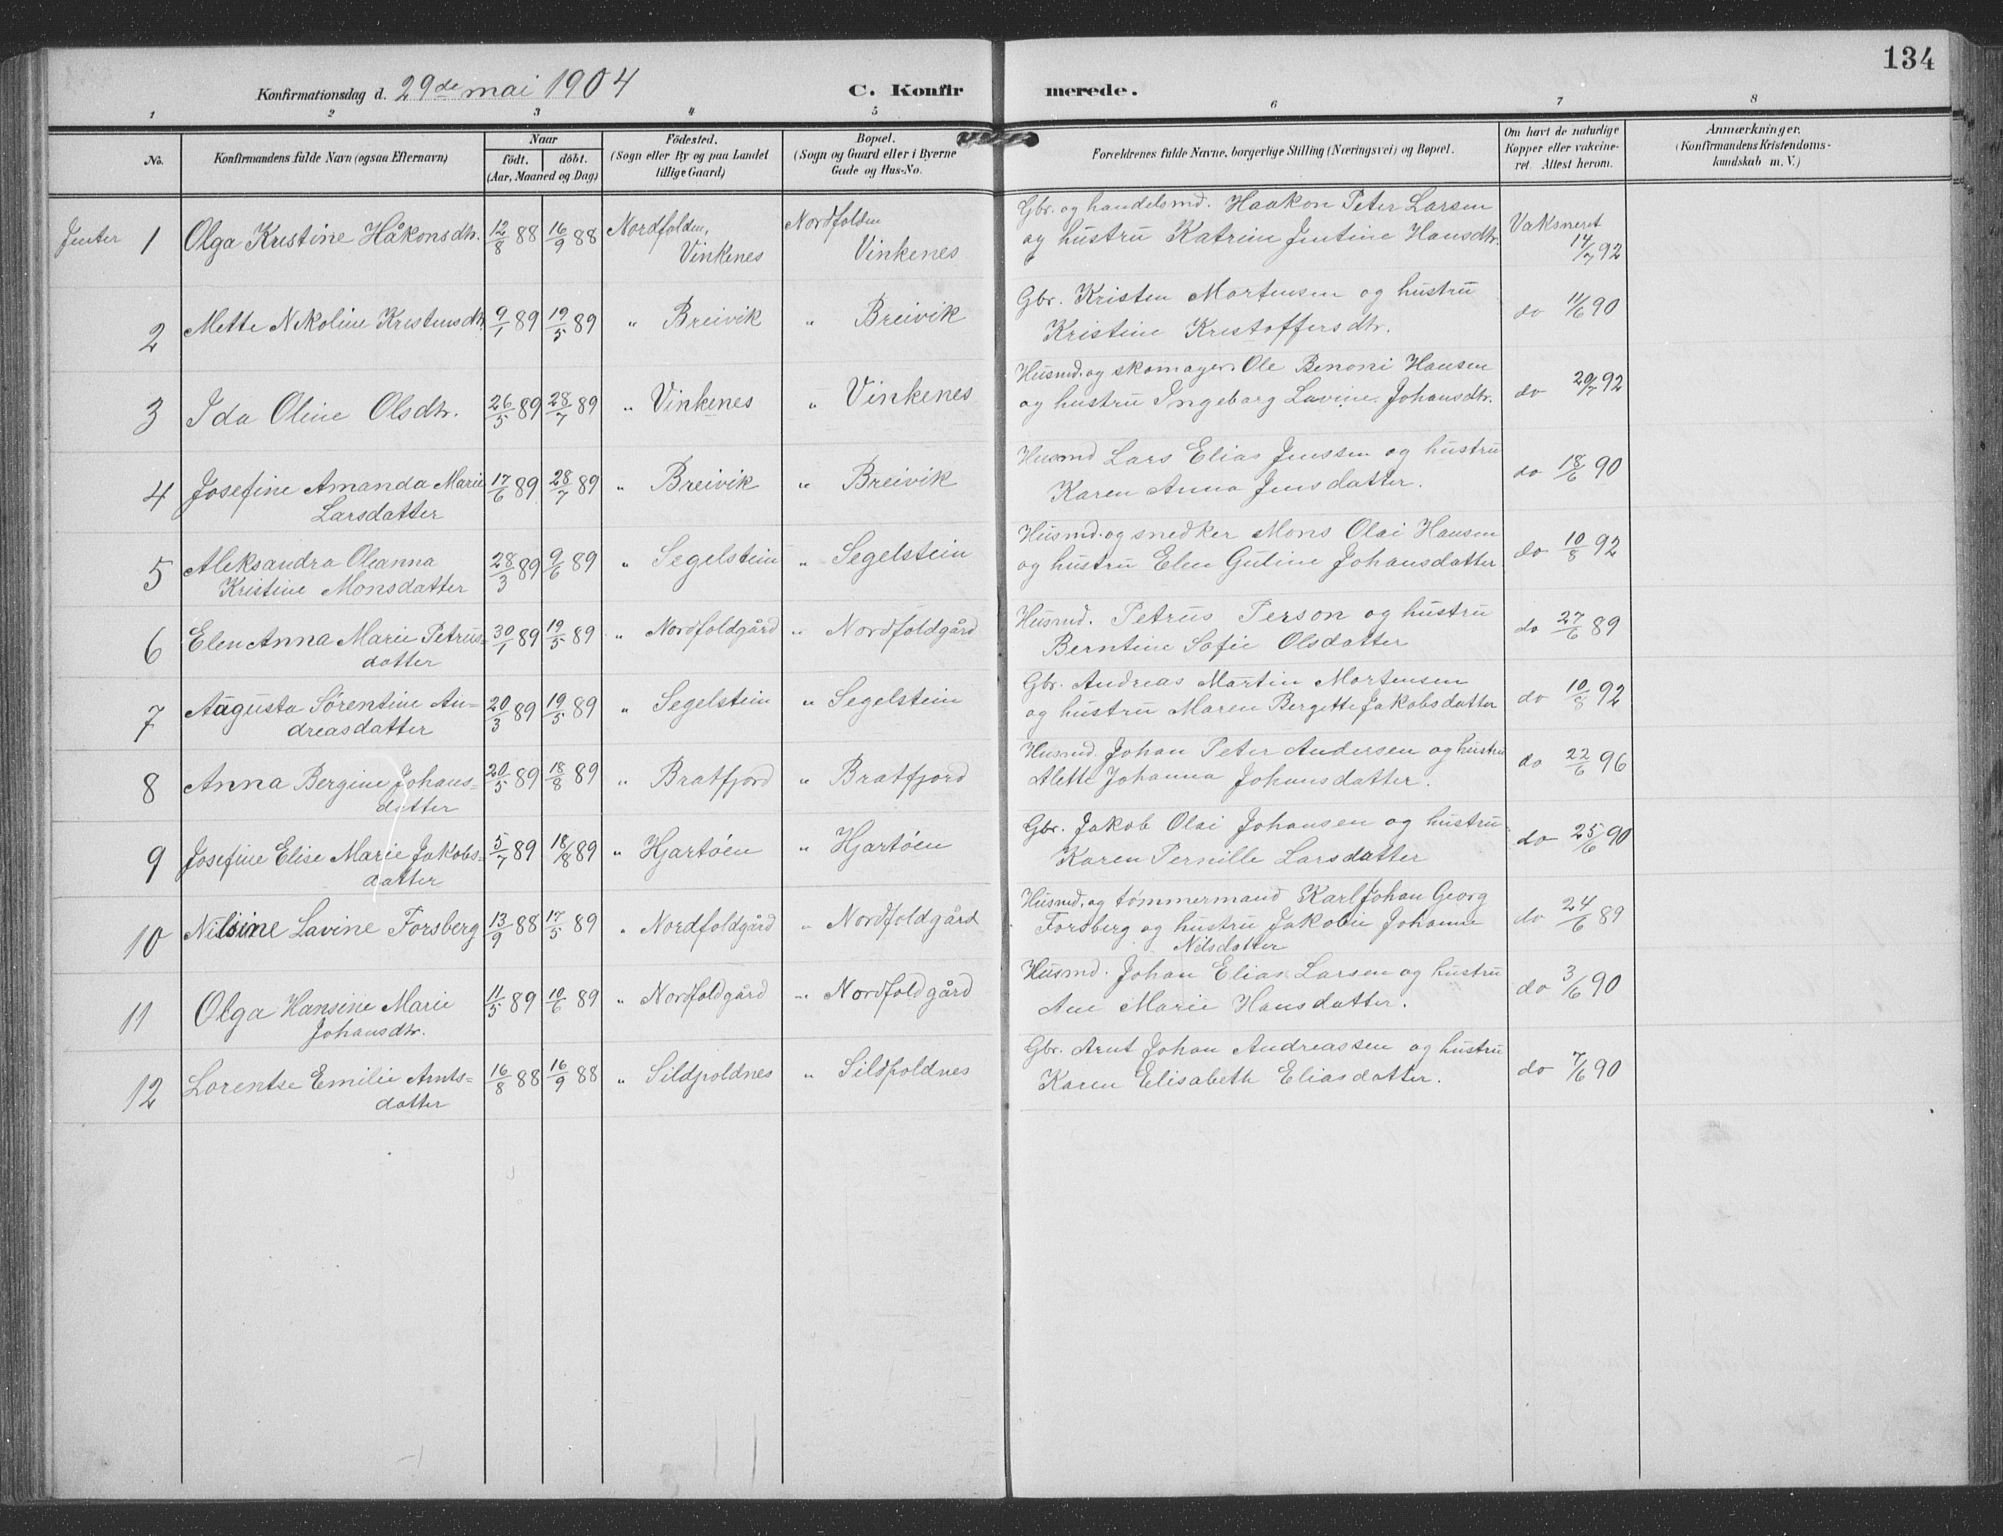 134
Konfirmationsdag d. 29de mai 1904
C. Konfirmerede.
1 2 3 4 5 6 7 8
No.
Konfirmandens fulde Navn (ogsaa Efternavn)
Naar
födt. döbt.
(Aar, Maaned og Dag)
Födested.
(Sogn eller By og paa Landet
tillige Gaard)
Bopæl.
(Sogn og Gaard eller i Byerne
Gade og Hus-No.
Forældrenes fulde Navne, borgerlige Stilling (Næringsvei) og Bopæl.
Om havt de naturlige
Kopper eller vakcine-
ret. Attest herom.
Anmærkninger.
(Konfirmandens Kristendoms-
kundskab m. V.)
Jenter 1 Olga Kristine Håkonsdtr. 12/8 88 16/9 88 Nordfolden, Vinkenes Nordfolden Vinkenes Gbr. og handelsmd. Haakon Peter Larsen
og hustru Katrine Jentine Hansdtr. Vaksineret 14/7 92
2 Mette Nikoline Kristensdtr 9/1 89 19/5 89 " Breivik " Breivik Gbr. Kristen Mortensen og hustru
Kristine Kristoffersdtr. do 11/6 90
3 Ida Oline Olsdtr. 26/5 89 28/7 89 " Vinkenes " Vinkenes Husmd. og skomager Ole Benoni Hansen
og hustru Ingeborg Lavine Johansdtr. do 20/7 92
4 Josefine Amanda Marie 17/6 89 28/7 89 " Breivik " Breivik Husmd Lars Elias Jenssen og hustru
Larsdatter Karen Anna Jensdatter. do 18/6 90
5 Aleksandra Oleanna 28/3 89 9/6 89 " Segelstein " Segelstein Husmd. og snedker Mons Olai Hansen
Kristine Monsdatter og hustru Elen Gutine Johansdatter do 10/8 92
6 Elen Anna Marie Petrus- 30/1 89 19/5 89 " Nordfoldgård " Nordfoldgård Husmd. Petrus Person og hustru
datter Berntine Sofie Olsdatter do 27/6 89
7 Augusta Sørentine An- 20/3 89 19/5 89 " Segelstein " Segelstein Gbr. Andreas Martin Mortensen
dreasdatter og hustru Maren Bergitte Jakobsdatter do 10/8 92
8 Anna Bergine Johans- 20/5 89 18/8 89 " Bratfjord " Bratfjord Husmd. Johan Peter Andersen og hustru
datter Alette Johanna Johansdatter. do 22/6 96
9 Josefine Elise Marie Jakobs- 5/7 89 18/8 89 " Hjartöen " Hjartöen Gbr. Jakob Olai Johansen og hustru
datter Karen Pernille Larsdatter do 25/6 90
10 Nilsine Lavine Forsberg 13/9 88 17/5 89 " Nordfoldgård " Nordfoldgård Husmd. og tømmermand Karl Johan Georg
Forsberg og hustru Jakobie Johanne
Nilsdatter do 24/6 89
11 Olga Hansine Marie 11/5 89 10/6 89 " Nordfoldgård " Nordfoldgård Husmd. Johan Elias Larsen og hustru
Johansdtr. Ane Marie Hansdatter. do 3/6 90
12 Lorentse Emilie Arnts- 16/8 88 16/9 88 " Sildpoldnes " Sildpoldnes Gbr. Arnt Johan Andreassen og hustru
datter Karen Elisabeth Eliasdatter. do 7/6 90